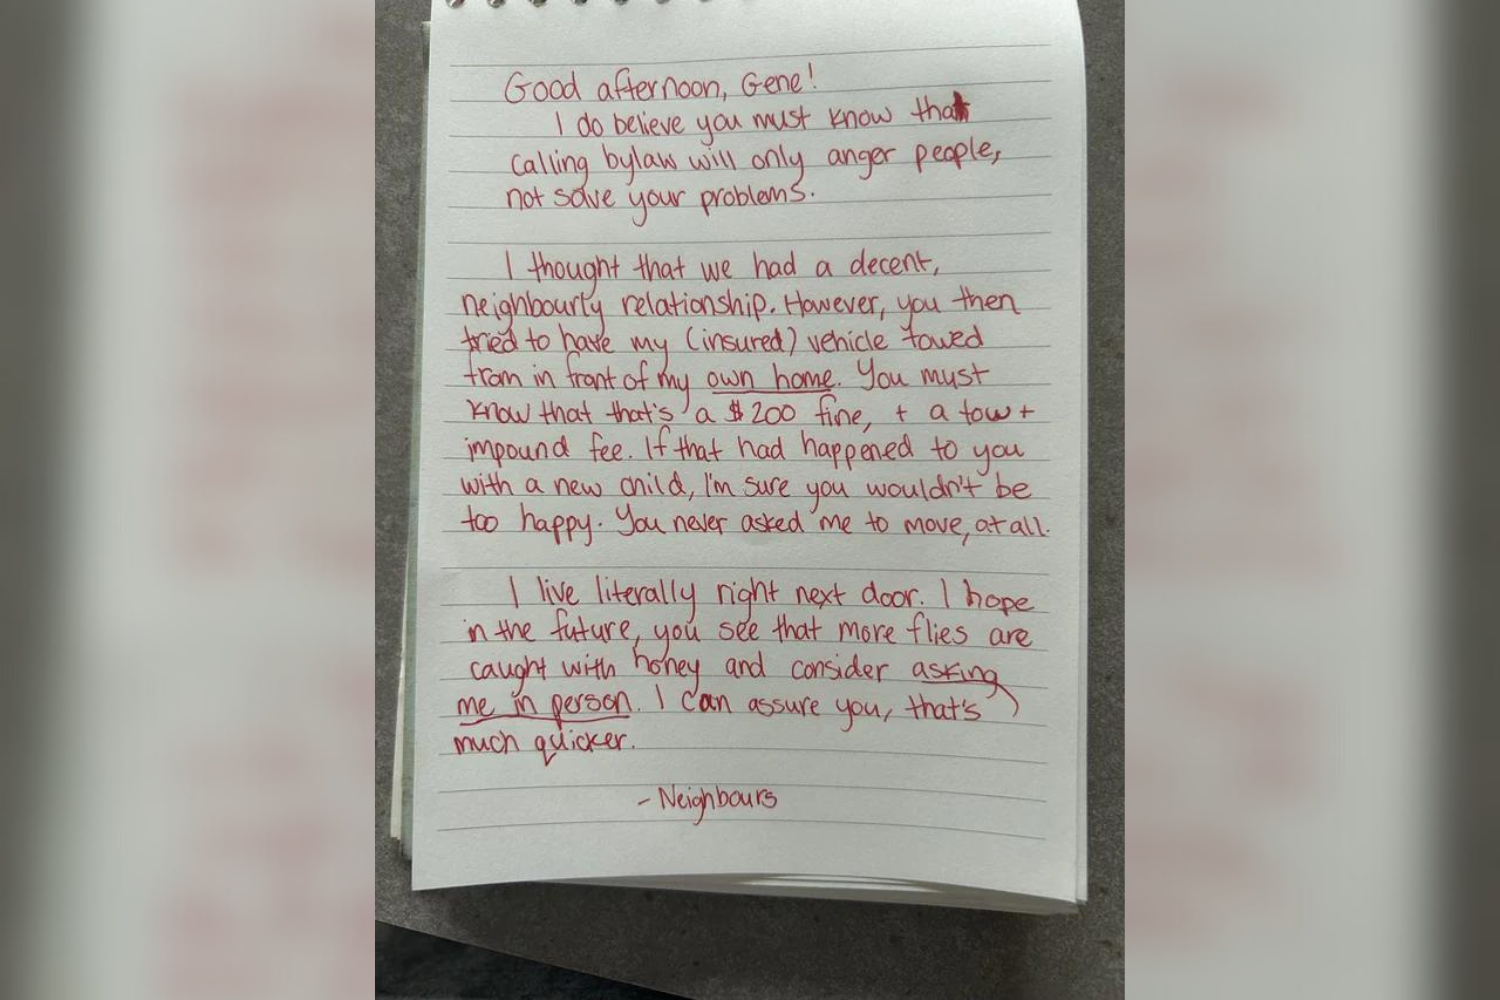 Good afternoon, Gene!
I do believe you must know that
calling bylaw will only anger people,
not solve your problems.
I thought that we had a decent,
neighbourly relationship. However, you then
tried to have my (insured) vehicle towed
from in front of my own home. You must
know that that's a $200 fine, + a tow +
impound fee. If that had happened to you
with a new child, I'm sure you wouldn't be
too happy. You never asked me to move, at all.
I live literally right next door. I hope
in the future, you see that more flies are
caught with honey and consider asking
me in person. I can assure you, that's
much quicker.
- Neighbours